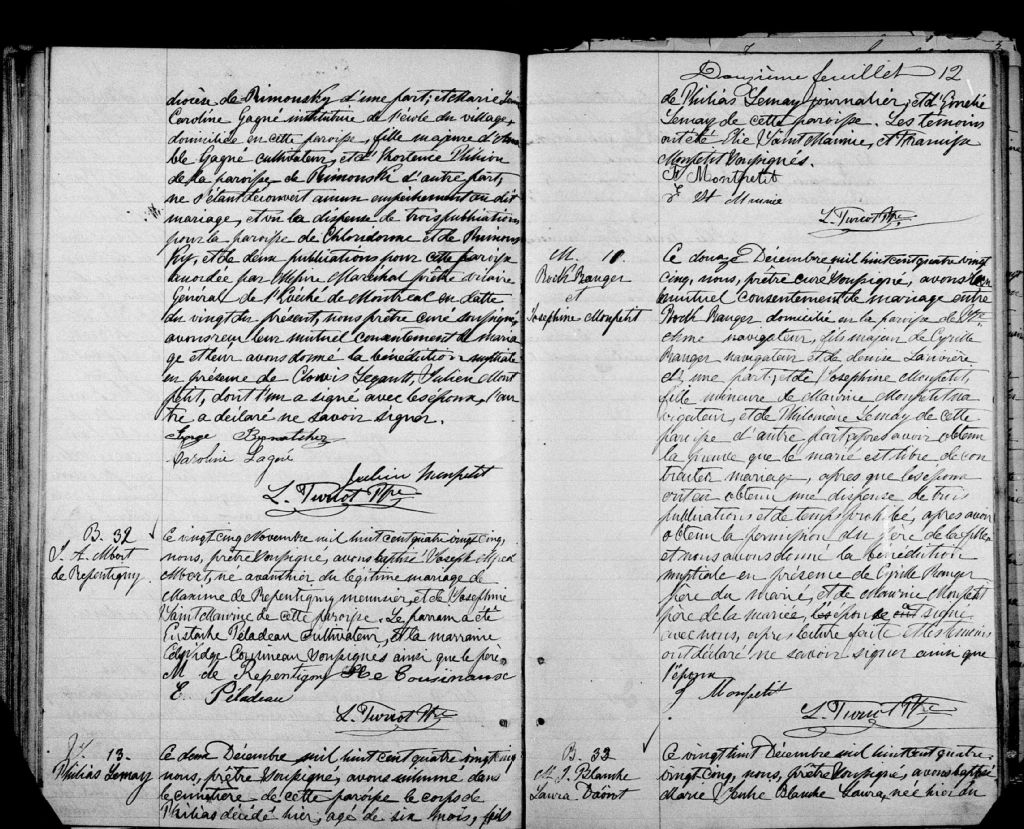 diocèse de Rimousky d'une part; et Marie
Caroline Gagné institutrice de l'école du village,
domiciliée en cette paroisse, fille majeure d'
Gagné cultivateur, et d'Hortense
de la paroisse de Rimouski d'autre part,
ne s'étant découvert aucun empêchement au dit
mariage, et vu la dispense de trois publications
pour la paroisse de Chloridorme et de Rimous
ky, et de deux publications pour cette paroisse
accordée par Maréchal prêtre vicaire
Général de l'évêché de Montréal en date
du vingt du présent, nous prêtre curé soussigné,
avons reçu leur mutuel consentement de maria
ge et leur avons donné la bénédiction nuptiale
en présence de Clovis Legault, Julien Mont
petit, dont l'un a signé avec les époux, l'au
tre a déclaré ne savoir signer.
Caroline Gagné
Julien Monpetit
L. Turcot Ptre
B. 32
J. A. Albert
de Repentigny
Ce vingt cinq Novembre mil huit cent quatre vingt cinq,
nous, prêtre soussigné, avons baptisé Joseph
Albert, né avanthier du légitime mariage de
Maxime de Repentigny meunier, et de Josephine
Saint Maurice de cette paroisse. Le parrain a été
Eustache Péladeau cultivateur, et la marraine
Cousineau soussignés ainsi que le père.
M. de Repentigny Cousineause
E. Péladeau
L. Turcot Ptre
13.
Philias Lemay
Ce douze Décembre mil huit cent quatre vingt cinq
nous, prêtre soussigné, avons inhumé dans
le cimetière de cette paroisse le corps de
Philias décédé hier, agé de six mois, fils
Douzième feuillet 12
de Philias Lemay journalier, et d'
Lemay de cette paroisse. Les témoins
ont été Elie Saint Maurice, et
Monpetit soussignés.
Montpetit
E St Maurice
L. Turcot Ptre.
M.
Roch Ranger
et
Josephine Monpetit
Ce douze Décembre mil huit cent quatre vingt
cinq, nous, prêtre curé soussigné, avons
mutuel consentement de mariage entre
Roch Ranger domicilié en la paroisse de
navigateur, fils majeur de Cyrille
Ranger navigateur et de Larivière
d'une part; et de Josephine Monpetit,
fille mineure de Maurice Monpetit na
vigateur, et de Philomène Lemay de cette
paroisse d'autre part, après avoir obtenu
la preuve que le marié est libre de con
tracter mariage, après que les époux
ont eu obtenu une dispense de trois
publications et de temps prohibé, après avoir
obtenu la permission du père de la fille
et nous avons donné la bénédiction
nuptiale en présence de Cyrille Ranger
père du marié, et de Maurice Monpetit
père de la mariée, signé
avec nous, après lecture faite et les témoins
ont déclaré ne savoir signer ainsi que
l'époux
J Monpetit
L. Turcot Ptre
B. 33
M. J. Blanche
Laura
Ce vingt huit Décembre mil huit cent quatre
vingt cinq, nous, prêtre soussigné, avons baptisé
Marie Blanche Laura, née hier du